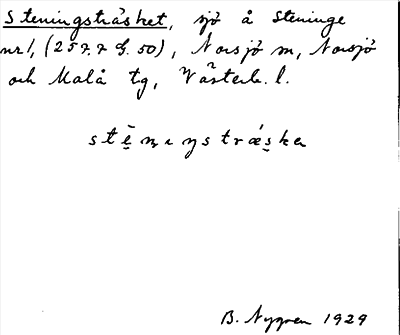 Steningsträsket, sjö å Steninge
nr 1, (257.7 g. 50), Norsjö sn, Norsjö
och Malå tg, Västerb. l.
stēnıŋstræska
B. Nygren 1929